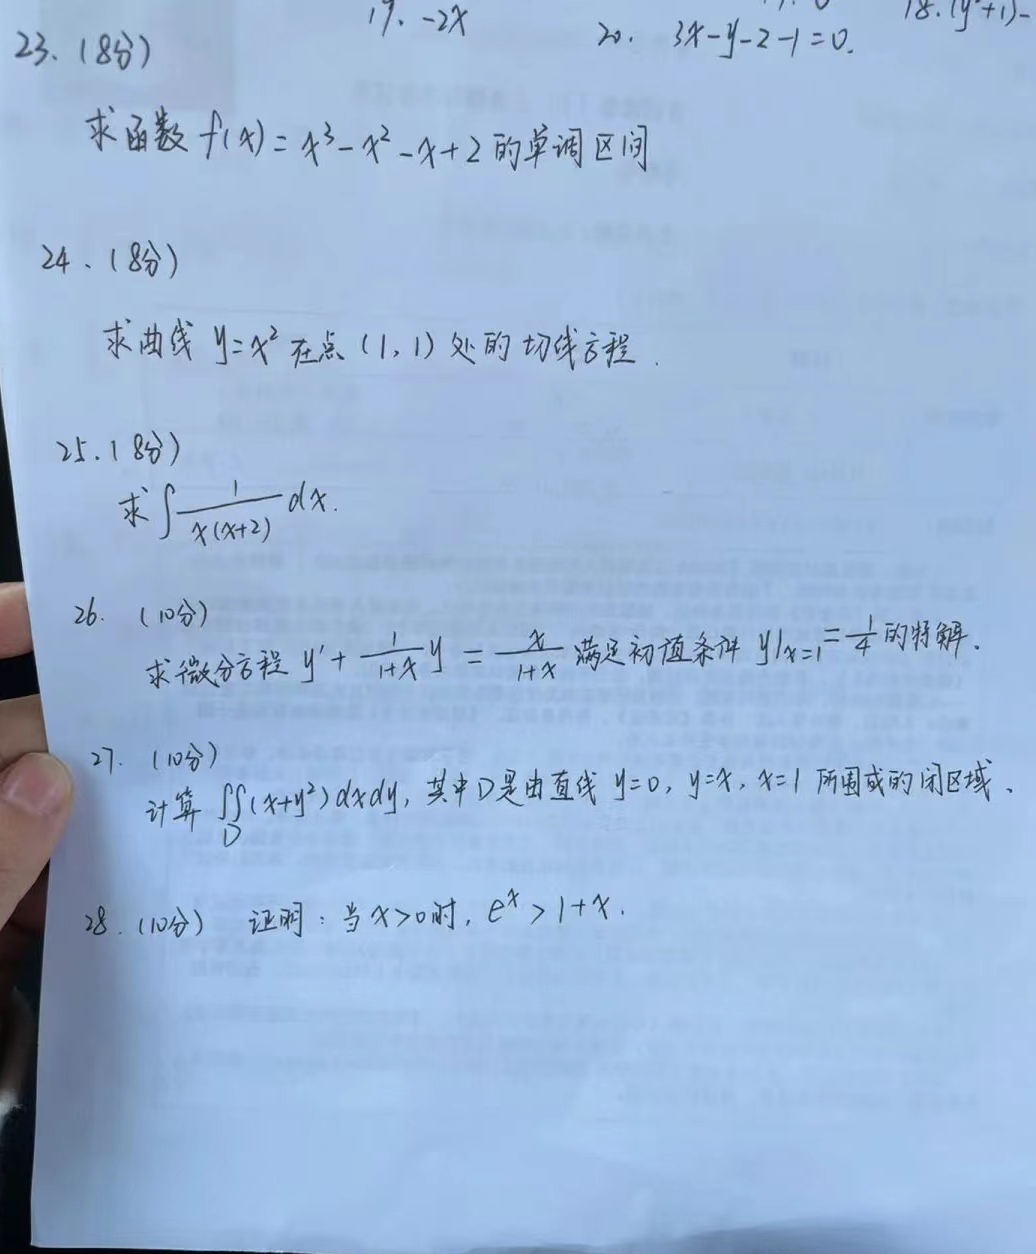 19. -2x
20. 3x-y-z-1=0.
23. (8分)
求函数 f(x)=x³-x²-x+2 的单调区间
24. (8分)
求曲线 y=x² 在点 (1,1) 处的切线方程.
25. (8分)
求 ∫ 1/(x(x+2)) dx.
26. (10分)
求微分方程 y′ + 1/(1+x) y = x/(1+x) 满足初值条件 y|x=1 = 1/4 的特解.
27. (10分)
计算 ∬D (x+y²)dxdy, 其中D是由直线 y=0, y=x, x=1 所围成的闭区域.
28. (10分) 证明: 当 x>0时, eˣ > 1+x.